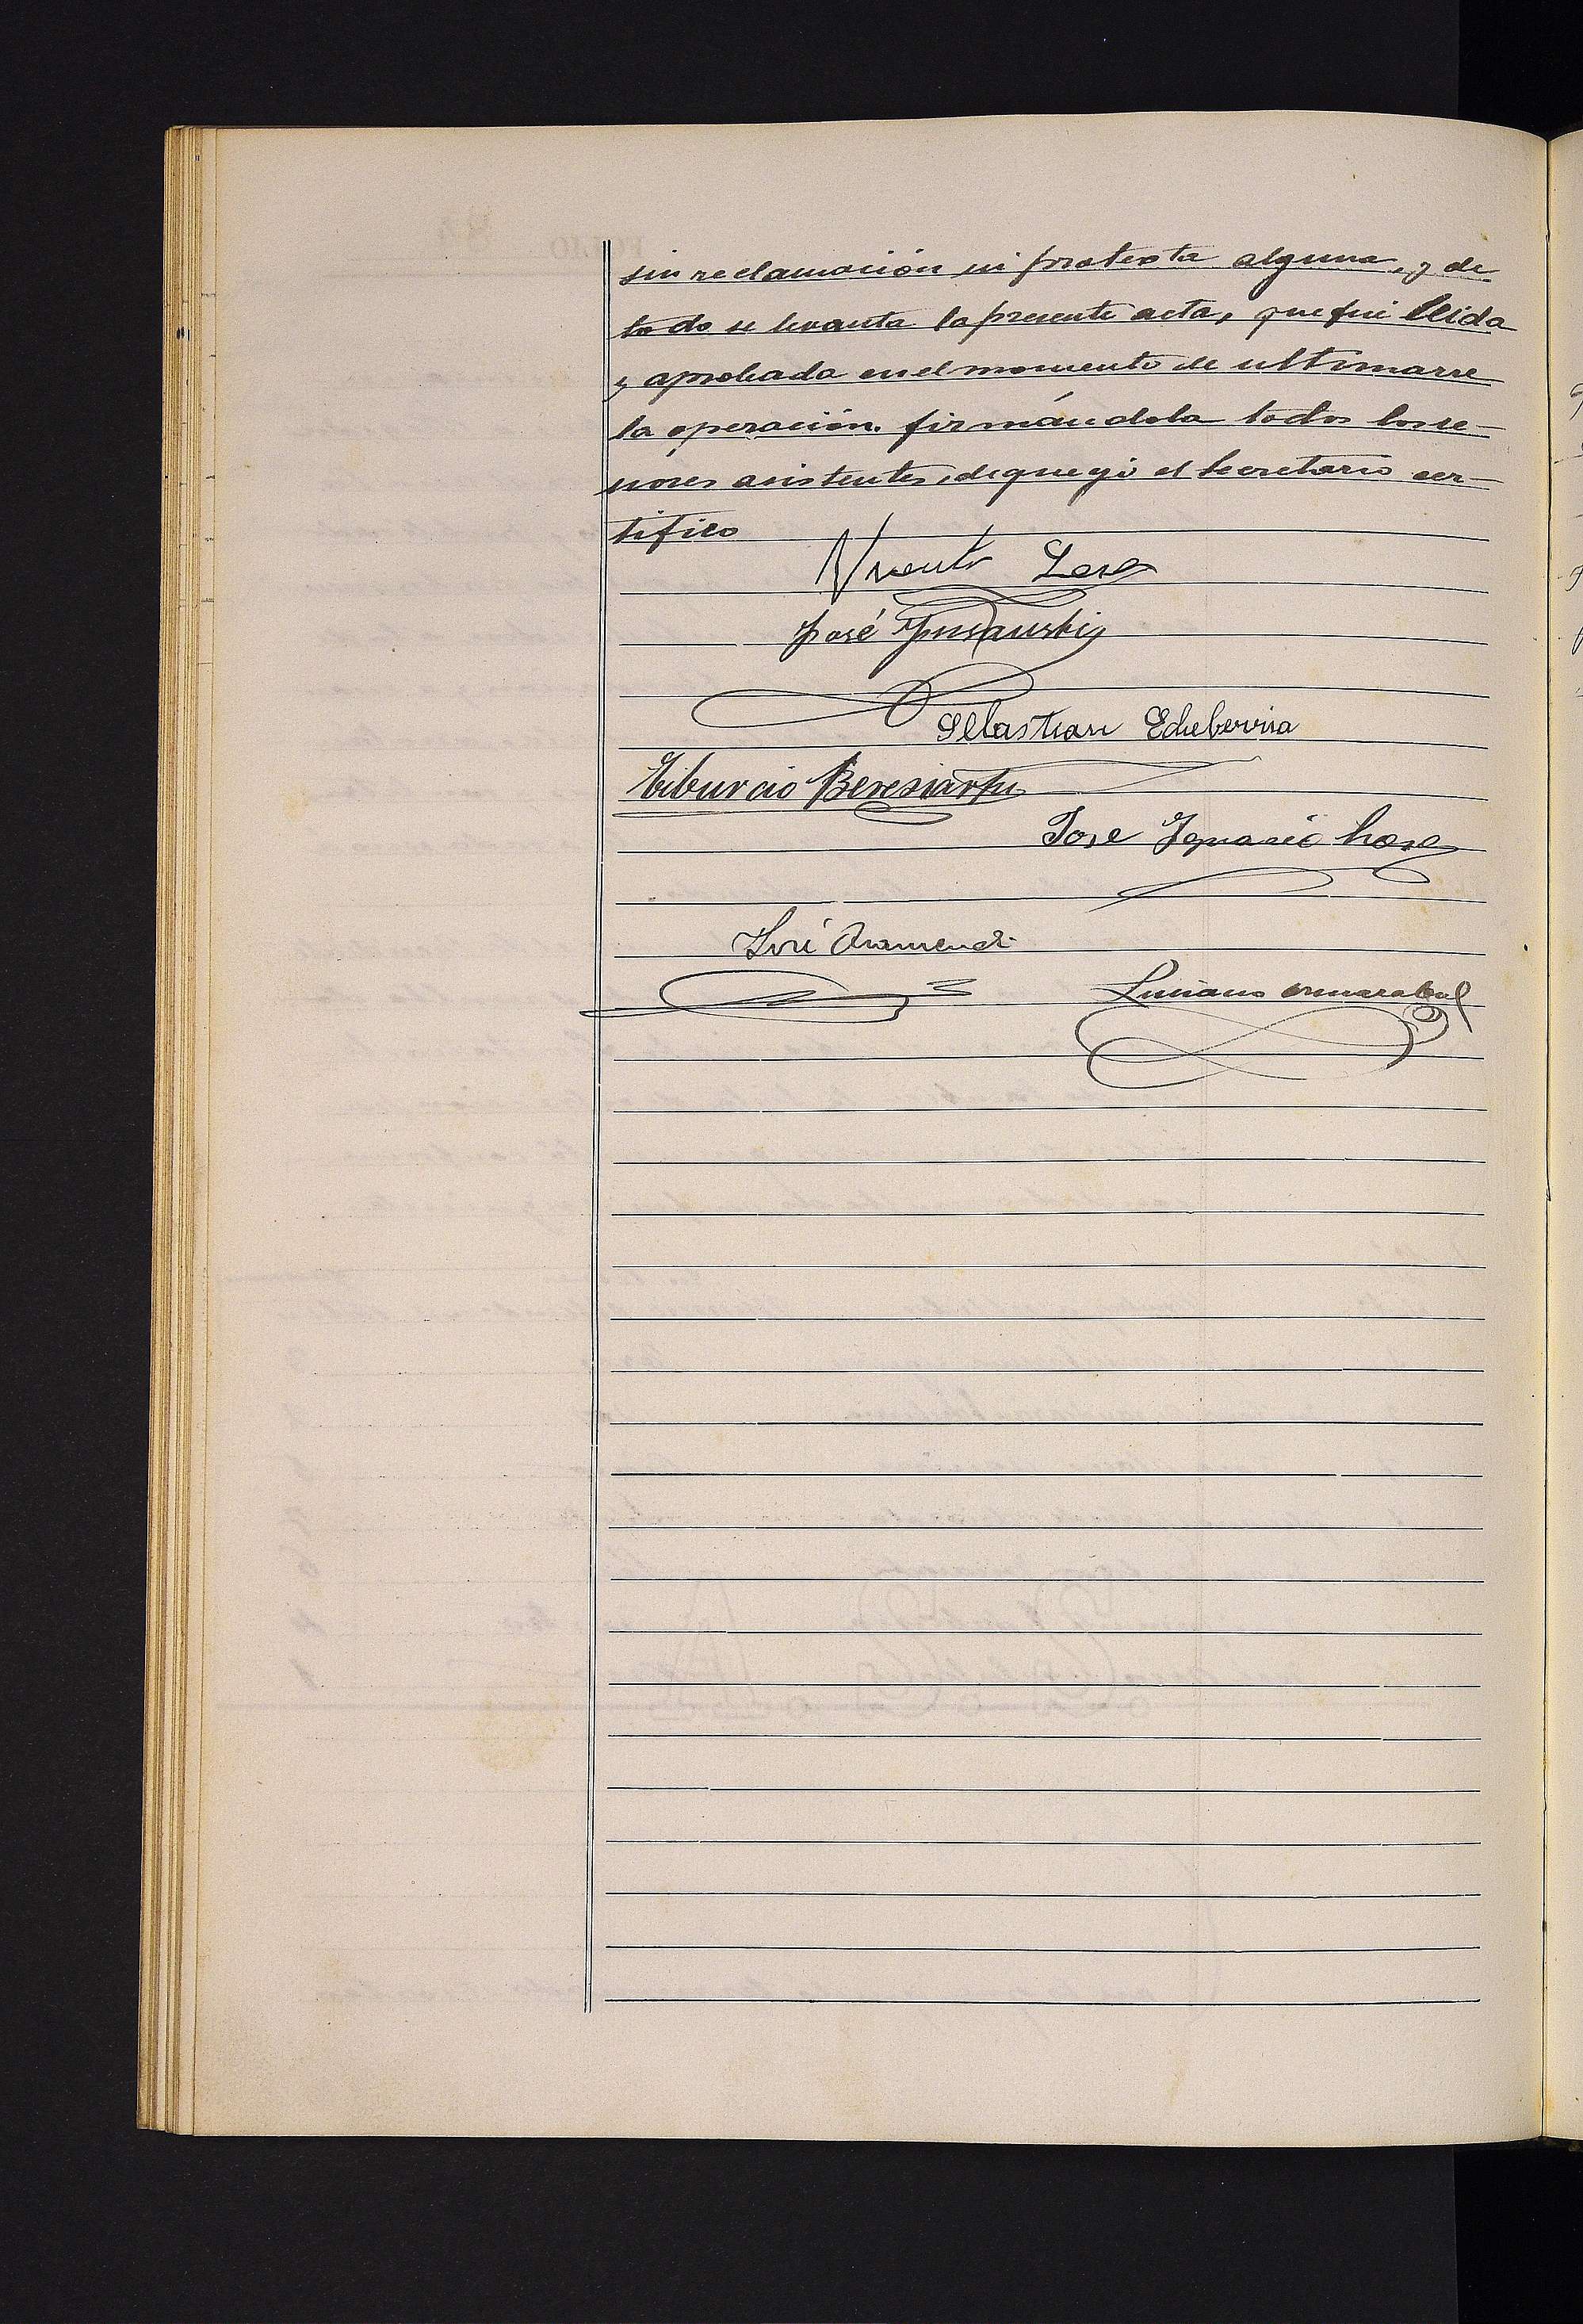 sin reclamación ni protesta alguna, y de
todo se levanta la presente acta, que fué leida
y aprobada en el momento de ultimarse
la operación. firmándola todos los se-
ñores asistentes, de que yo el Secretario cer-
tifico
Vicente Lasa
José Insausti
Sebastian Echeberria
Tiburcio Beresiartu
Jose Ignacio Lasa
José Aramendi
Luciano